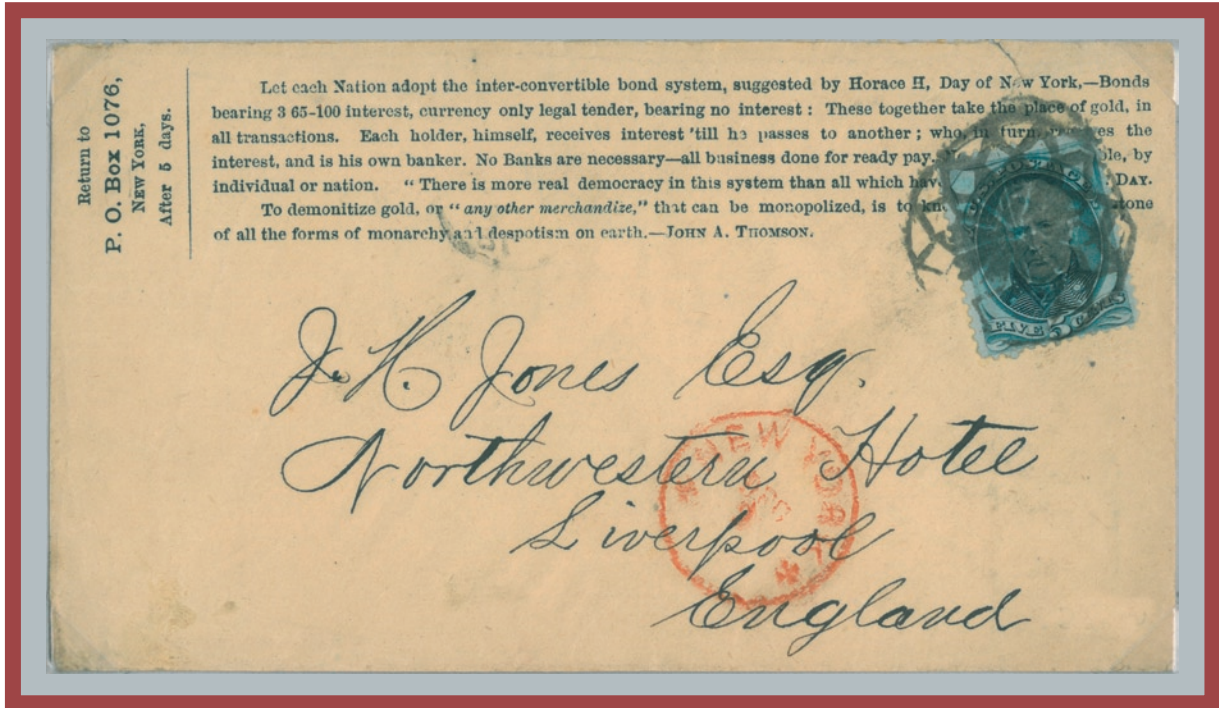 Return to
P. O. Box 1076,
NEW YORK,
After 5 days.
Let each Nation adopt the inter-convertible bond system, suggested by Horace H, Day of New York,—Bonds
bearing 3 65-100 interest, currency only legal tender, bearing no interest : These together take the place of gold, in
all transactions. Each holder, himself, receives interest 'till he passes to another ; who, in turn, receives the
interest, and is his own banker. No Banks are necessary—all business done for ready pay. ble, by
individual or nation. “ There is more real democracy in this system than all which hav DAY.
To demonitize gold, or “ any other merchandize,” that can be monopolized, is to kn stone
of all the forms of monarchy and despotism on earth.—JOHN A. THOMSON.
U.S. POSTAGE
FIVE 5 CENTS
J. H. Jones Esq.
Northwestern Hotel
Liverpool
England
NEW YORK
DEC